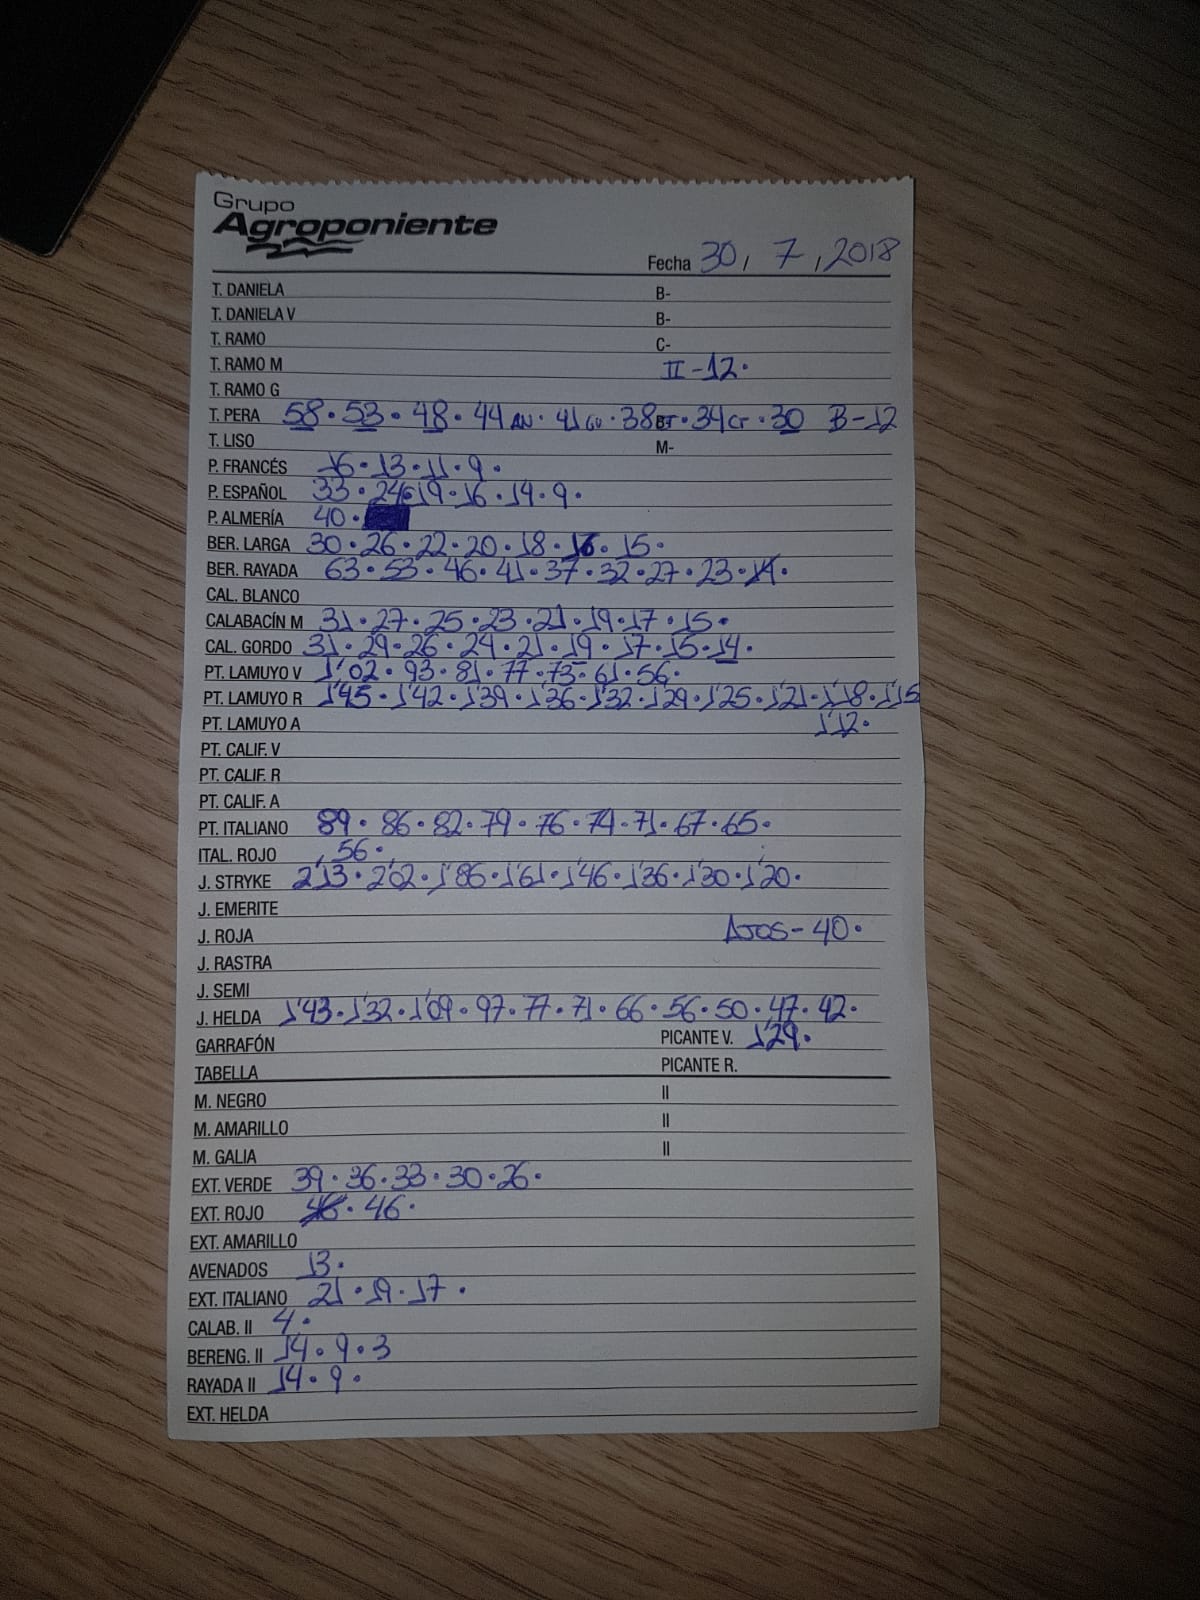 Grupo
Agroponiente
Fecha 30, 7, 2018
T. DANIELA B-
T. DANIELA V B-
T. RAMO C-
T. RAMO M II-12.
T. RAMO G
T. PERA 58. 53. 48. 44 AN. 41 GU. 38 BT. 34 CT. 30 B-12
T. LISO M-
P. FRANCÉS 16. 13. 11. 9.
P. ESPAÑOL 33. 24. 19. 16. 14. 9.
P. ALMERÍA 40.
BER. LARGA 30. 26. 22. 20. 18. 16. 15.
BER. RAYADA 63. 53. 46. 41. 37. 32. 27. 23.
CAL. BLANCO
CALABACÍN M 31. 27. 25. 23. 21. 19. 17. 15.
CAL. GORDO 31. 29. 26. 24. 21. 19. 17. 15. 14.
PT. LAMUYO V 1'02. 93. 81. 77. 73. 61. 56.
PT. LAMUYO R 1'45. 1'42. 1'39. 1'36. 1'32. 1'29. 1'25. 1'21. 1'18. 1'15
PT. LAMUYO A 1'12.
PT. CALIF. V
PT. CALIF. R
PT. CALIF. A
PT. ITALIANO 89. 86. 82. 79. 76. 74. 71. 67. 65.
ITAL. ROJO 56.
J. STRYKE 2'13. 2'02. 1'86. 1'61. 1'46. 1'36. 1'30. 1'20.
J. EMERITE
J. ROJA AJOS-40.
J. RASTRA
J. SEMI
J. HELDA 1'43. 1'32. 1'09. 97. 77. 71. 66. 56. 50. 47. 42.
GARRAFÓN PICANTE V. 1'29.
TABELLA PICANTE R.
M. NEGRO II
M. AMARILLO II
M. GALIA II
EXT. VERDE 39. 36. 33. 30. 26.
EXT. ROJO 46.
EXT. AMARILLO
AVENADOS 13.
EXT. ITALIANO 21. 19. 17.
CALAB. II 4.
BERENG. II 14. 9. 3
RAYADA II 14. 9.
EXT. HELDA